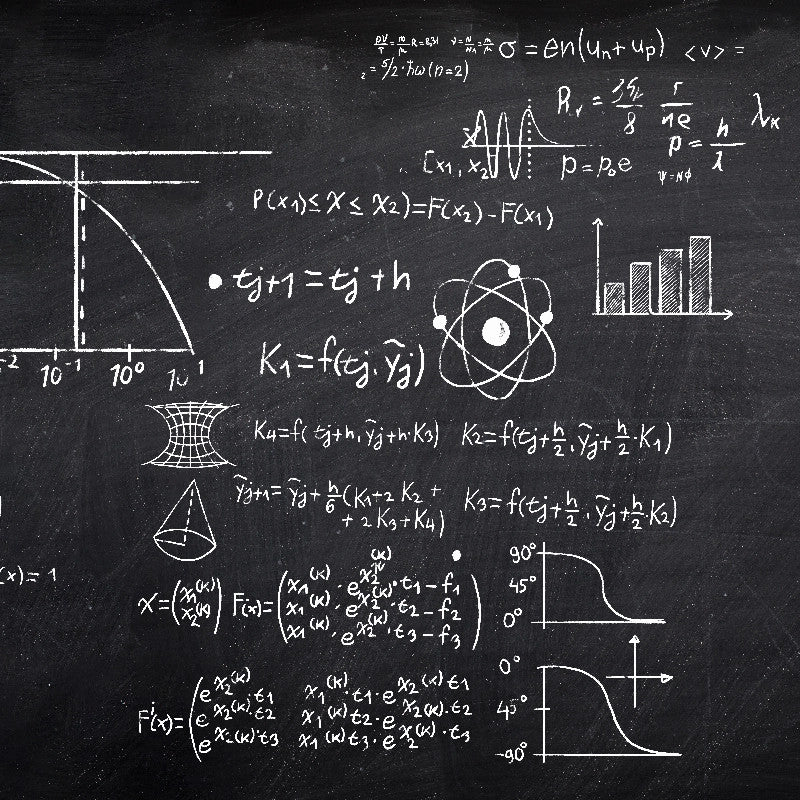 σ = en(un + up) <v> =
= 5/2·ħω(n=2)
λk
p = h/λ
[x1, x2
p = p0e
ψ=Nϕ
P(x1)≤ X ≤ X2)=F(x2) - F(x1)
tj+1 = tj + h
K1 = f(tj, ŷj)
-2 10^-1 10^0 10^1
K4=f( tj+h, ŷj+h·K3) K2=f(tj+h/2, ŷj+h/2·K1)
ŷj+1= ŷj+h/6(K1+2 K2 +
+ 2 K3+K4) K3=f(tj+h/2, ŷj+h/2·K2)
(x)= 1
X=(x1^(k) x2^(k)) F(x)=(x1^(k)·e^x2^(k)·t1 - f1
x1^(k)·e^x2^(k)·t2 - f2
x1^(k)·e^x2^(k)·t3 - f3)
90°
45°
0°
F'(x)=(e^x2^(k)·t1 x1^(k)·t1·e^x2^(k) t1
e^x2^(k)·t2 x1^(k) t2·e^x2^(k)·t2
e^x2^(k)·t3 x1^(k) t3·e^x2^(k)·t3
0°
45°
-90°